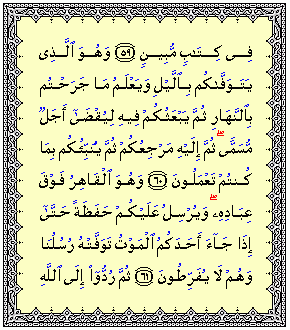 فِى كِتَٰبٍ مُّبِينٍ ﴿٥٩﴾ وَهُوَ ٱلَّذِى
يَتَوَفَّىٰكُم بِٱلَّيْلِ وَيَعْلَمُ مَا جَرَحْتُم
بِٱلنَّهَارِ ثُمَّ يَبْعَثُكُمْ فِيهِ لِيُقْضَىٰٓ أَجَلٌ
مُّسَمًّى ۖ ثُمَّ إِلَيْهِ مَرْجِعُكُمْ ثُمَّ يُنَبِّئُكُم بِمَا
كُنتُمْ تَعْمَلُونَ ﴿٦٠﴾ وَهُوَ ٱلْقَاهِرُ فَوْقَ
عِبَادِهِۦ ۖ وَيُرْسِلُ عَلَيْكُمْ حَفَظَةً حَتَّىٰٓ
إِذَا جَآءَ أَحَدَكُمُ ٱلْمَوْتُ تَوَفَّتْهُ رُسُلُنَا
وَهُمْ لَا يُفَرِّطُونَ ﴿٦١﴾ ثُمَّ رُدُّوٓا۟ إِلَى ٱللَّهِ